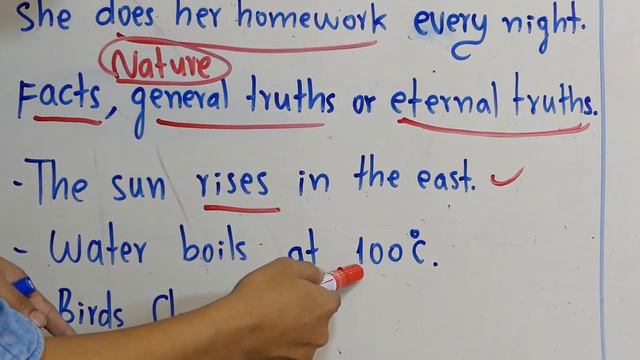 She does her homework every night.
Nature
Facts, general truths or eternal truths.
- The sun rises in the east.
- Water boils at 100°C.
Birds